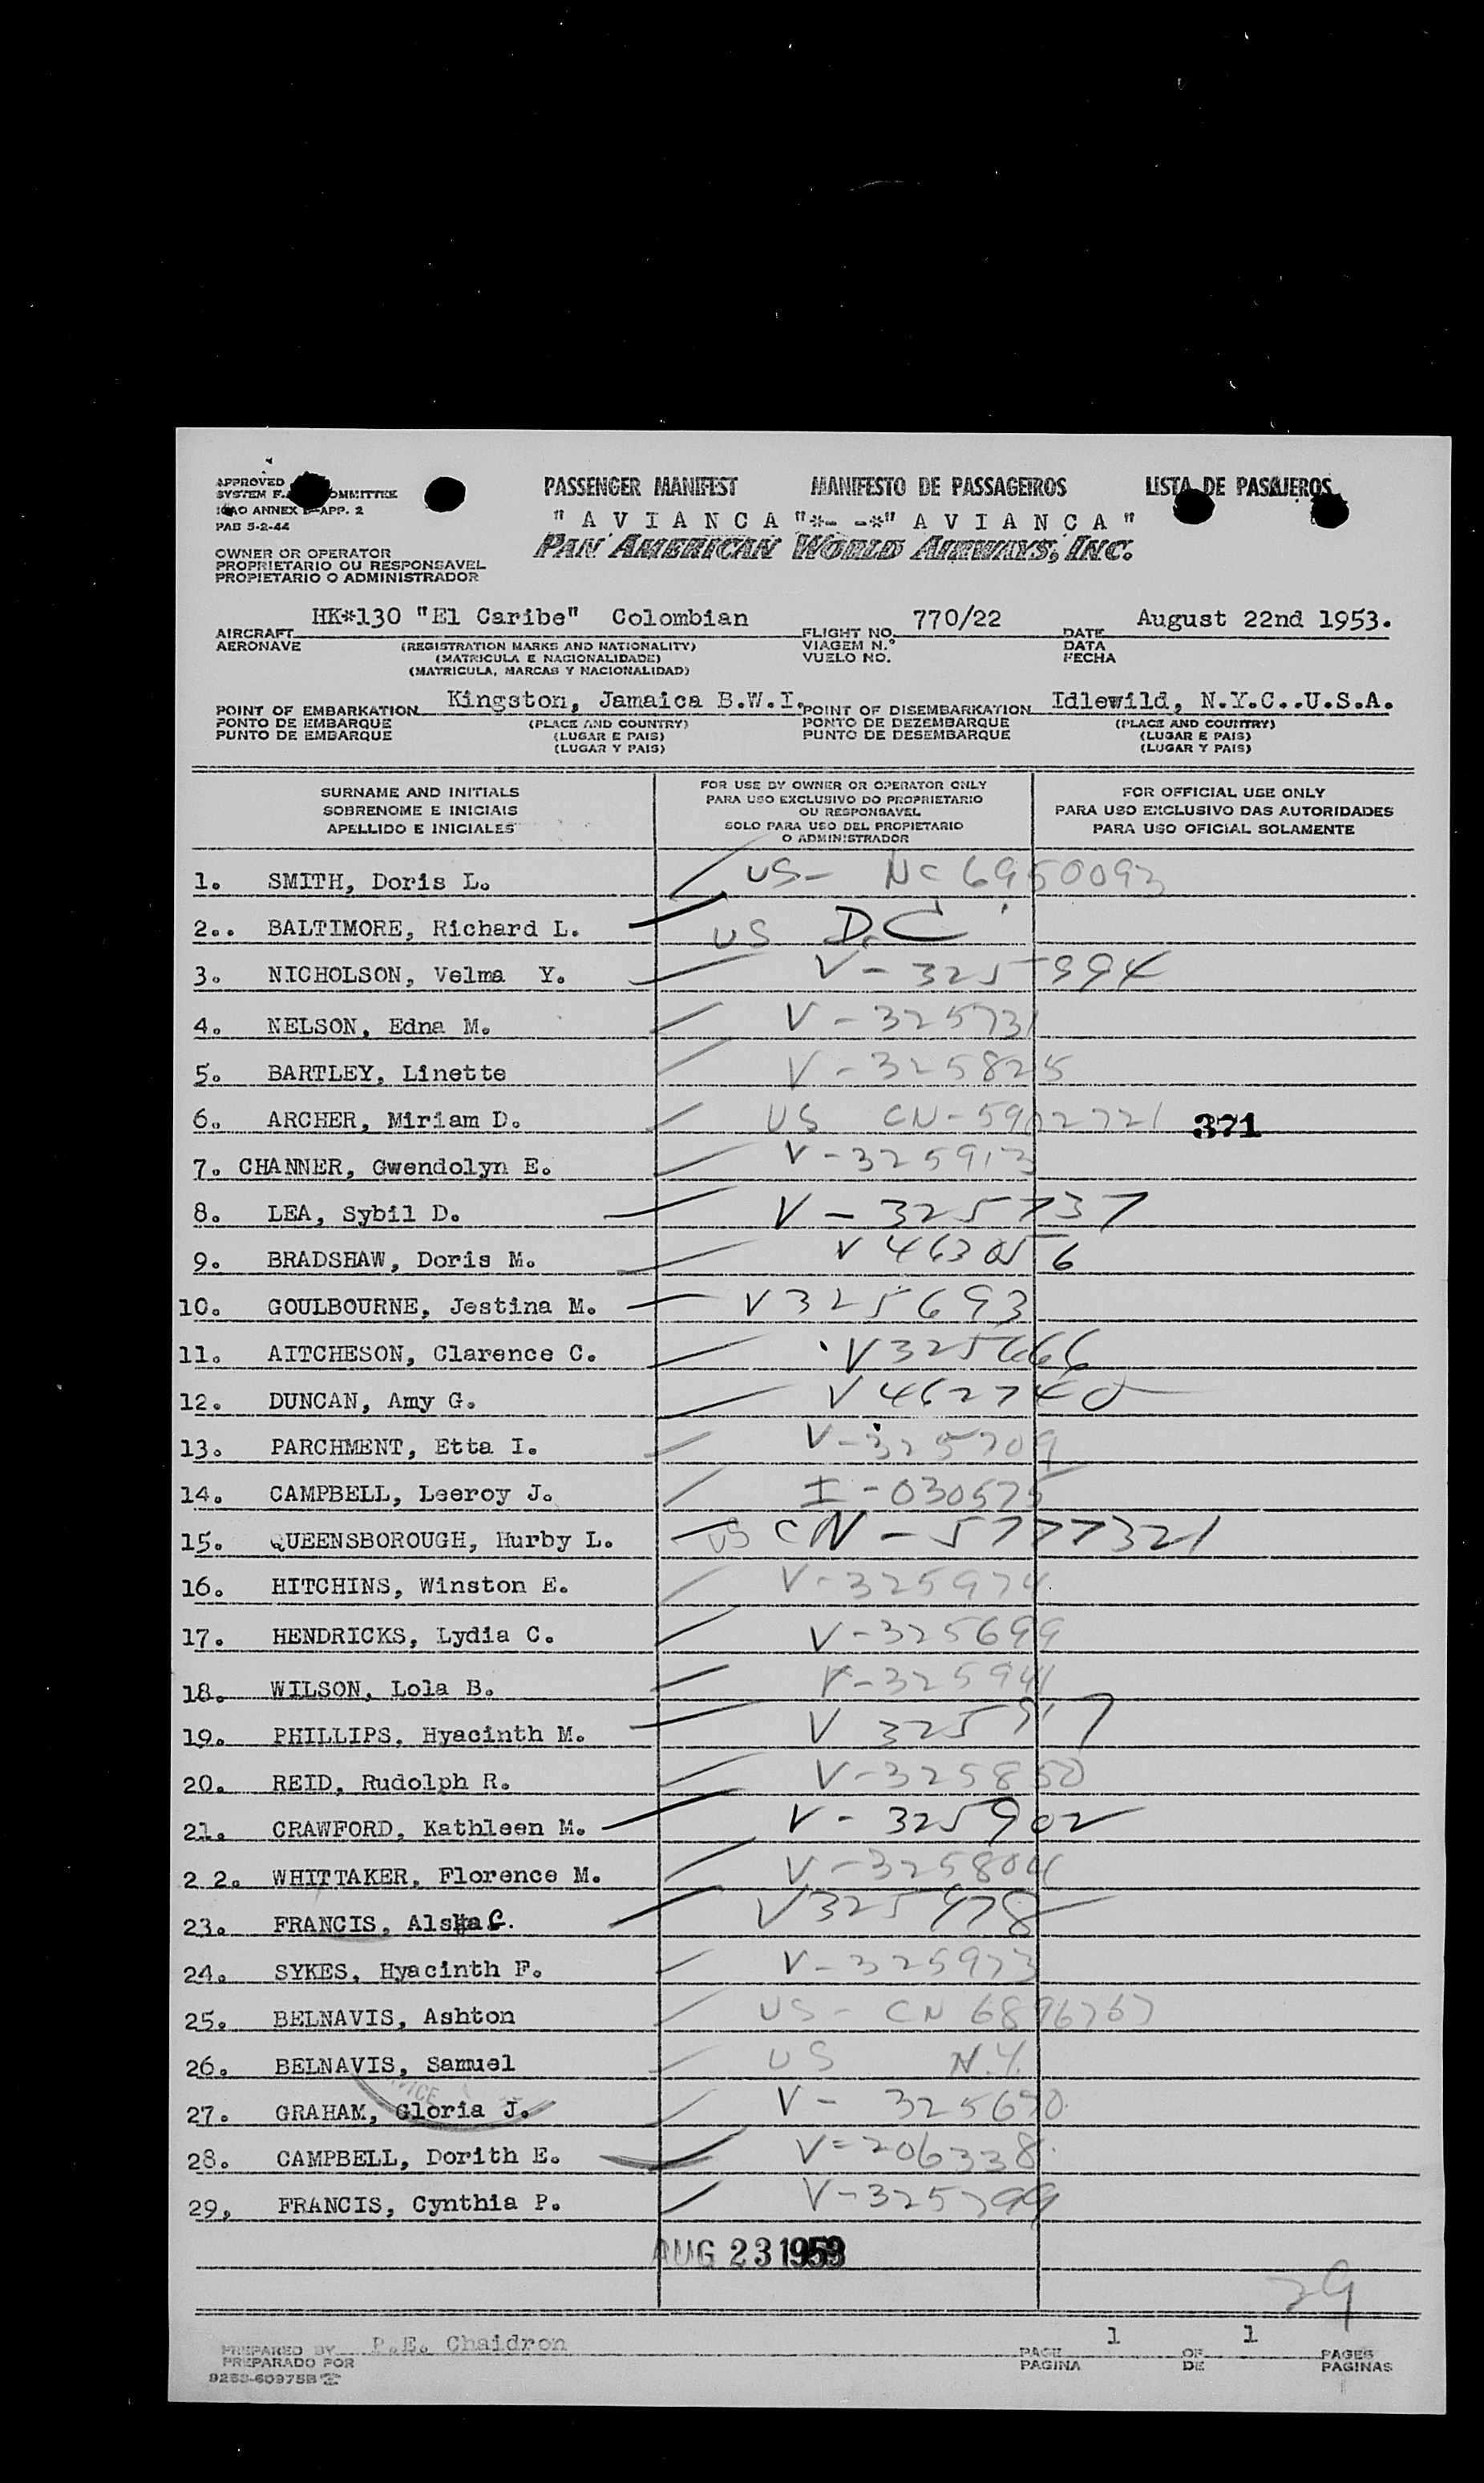 PASSENGER MANIFEST MANIFESTO DE PASSAGEIROS LISTA DE PASAJEROS
APPROVED
SYSTEM F. OMMITTEE
ICAO ANNEX APP. 2
PAB 5-2-44
" A V I A N C A "*- -*" A V I A N C A "
PAN AMERICAN WORLD AIRWAYS, INC.
OWNER OR OPERATOR
PROPRIETARIO OU RESPONSAVEL
PROPIETARIO O ADMINISTRADOR
AIRCRAFT HK*130 "El Caribe" Colombian FLIGHT NO. 770/22 DATE August 22nd 1953.
AERONAVE (REGISTRATION MARKS AND NATIONALITY) VIAGEM N.° DATA
(MATRICULA E NACIONALIDADE) VUELO NO. FECHA
(MATRICULA, MARCAS Y NACIONALIDAD)
POINT OF EMBARKATION Kingston, Jamaica B.W.I. POINT OF DISEMBARKATION Idlewild, N.Y.C..U.S.A.
PONTO DE EMBARQUE (PLACE AND COUNTRY) PONTO DE DEZEMBARQUE (PLACE AND COUNTRY)
PUNTO DE EMBARQUE (LUGAR E PAIS) PUNTO DE DESEMBARQUE (LUGAR E PAIS)
(LUGAR Y PAIS) (LUGAR Y PAIS)
SURNAME AND INITIALS
SOBRENOME E INICIAIS
APELLIDO E INICIALES
FOR USE BY OWNER OR OPERATOR ONLY
PARA USO EXCLUSIVO DO PROPRIETARIO
OU RESPONSAVEL
SOLO PARA USO DEL PROPIETARIO
O ADMINISTRADOR
FOR OFFICIAL USE ONLY
PARA USO EXCLUSIVO DAS AUTORIDADES
PARA USO OFICIAL SOLAMENTE
1. SMITH, Doris L. US- NC 6950093
2.. BALTIMORE, Richard L. US D.C
3. NICHOLSON, Velma Y. V-325994
4. NELSON, Edna M. V-325731
5. BARTLEY, Linette V-325825
6. ARCHER, Miriam D. US CN-5902721 371
7. CHANNER, Gwendolyn E. V-325913
8. LEA, Sybil D. V-325737
9. BRADSHAW, Doris M. V463056
10. GOULBOURNE, Jestina M. V325693
11. AITCHESON, Clarence C. V325666
12. DUNCAN, Amy G. V462740
13. PARCHMENT, Etta I. V-325709
14. CAMPBELL, Leeroy J. I-030575
15. QUEENSBOROUGH, Hurby L. US CN-5777321
16. HITCHINS, Winston E. V-325974
17. HENDRICKS, Lydia C. V-325699
18. WILSON, Lola B. V-325941
19. PHILLIPS, Hyacinth M. V 325917
20. REID, Rudolph R. V-325850
21. CRAWFORD, Kathleen M. V-325902
2 2. WHITTAKER, Florence M. V-325804
23. FRANCIS, C. V325978
24. SYKES, Hyacinth F. V-325973
25. BELNAVIS, Ashton US- CN 6896767
26. BELNAVIS, Samuel US N.Y.
27. GRAHAM, Gloria J. V-325670
28. CAMPBELL, Dorith E. V-206338
29, FRANCIS, Cynthia P. V-325799
AUG 23 1953
29
PREPARED BY P.E. Chaidron PAGE 1 OF 1 PAGES
PREPARADO POR PAGINA DE PAGINAS